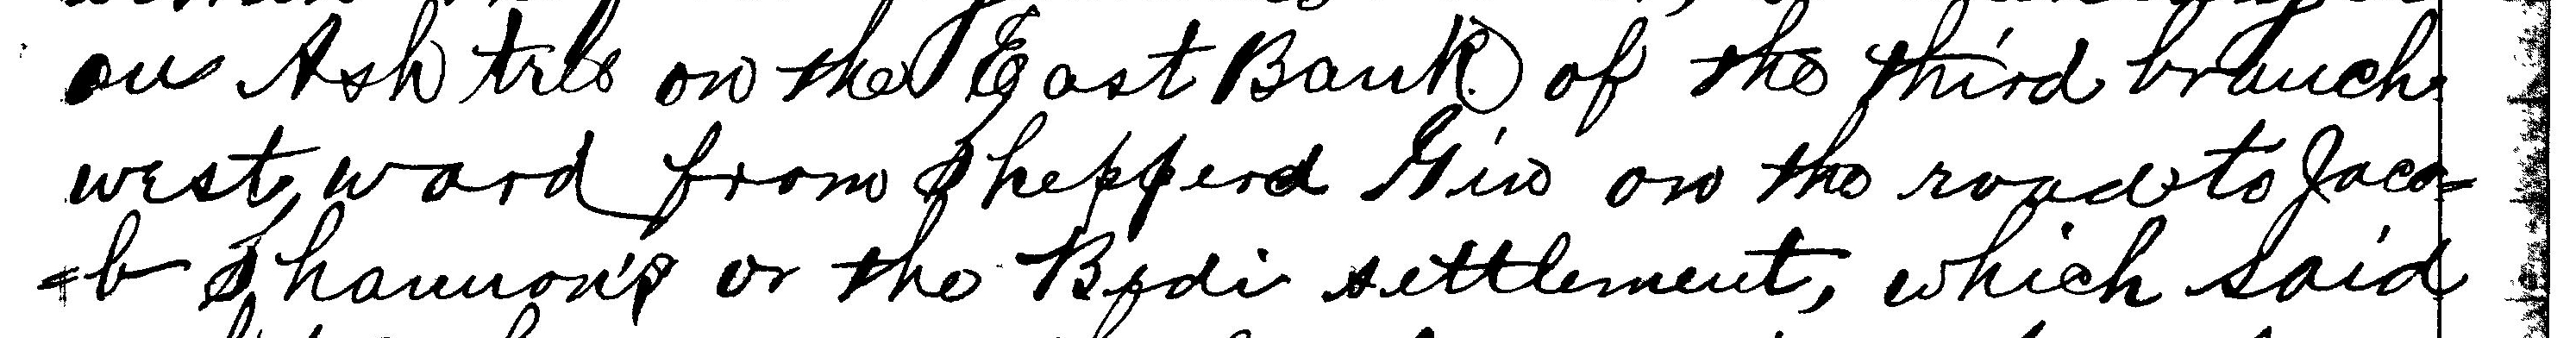 an Ash tree on the East Bank of the third branch
west ward from Shepperd Gin on the road to Jaco=
=b Shannon's or the Bedi settlement, which said